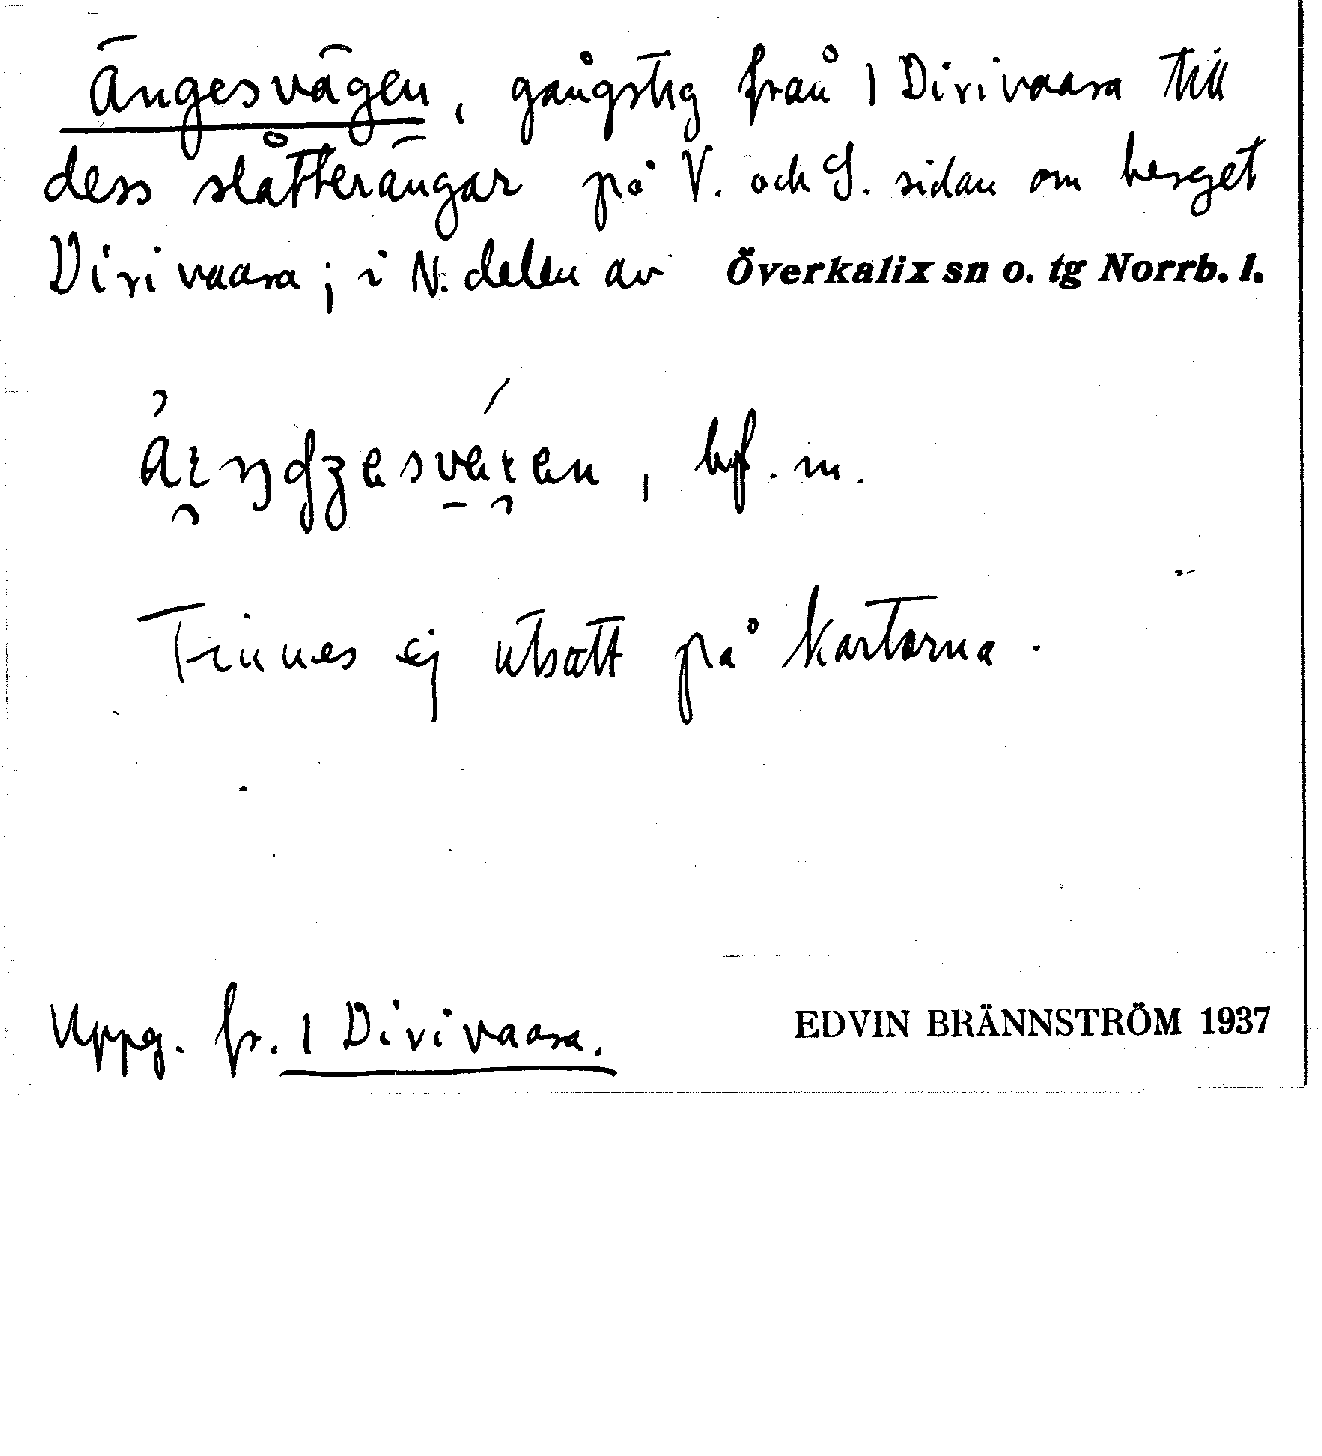 Ängesvägen, gångstig från 1 Dirivaara till
dess slåtterängar på V. och S. sidan om berget
Dirivaara; i N. delen av Överkalix sn o. tg Norrb. l.
bf. m.
Finnes ej utsatt på kartorna.
Uppg. fr. 1 Dirivaara.
EDVIN BRÄNNSTRÖM 1937